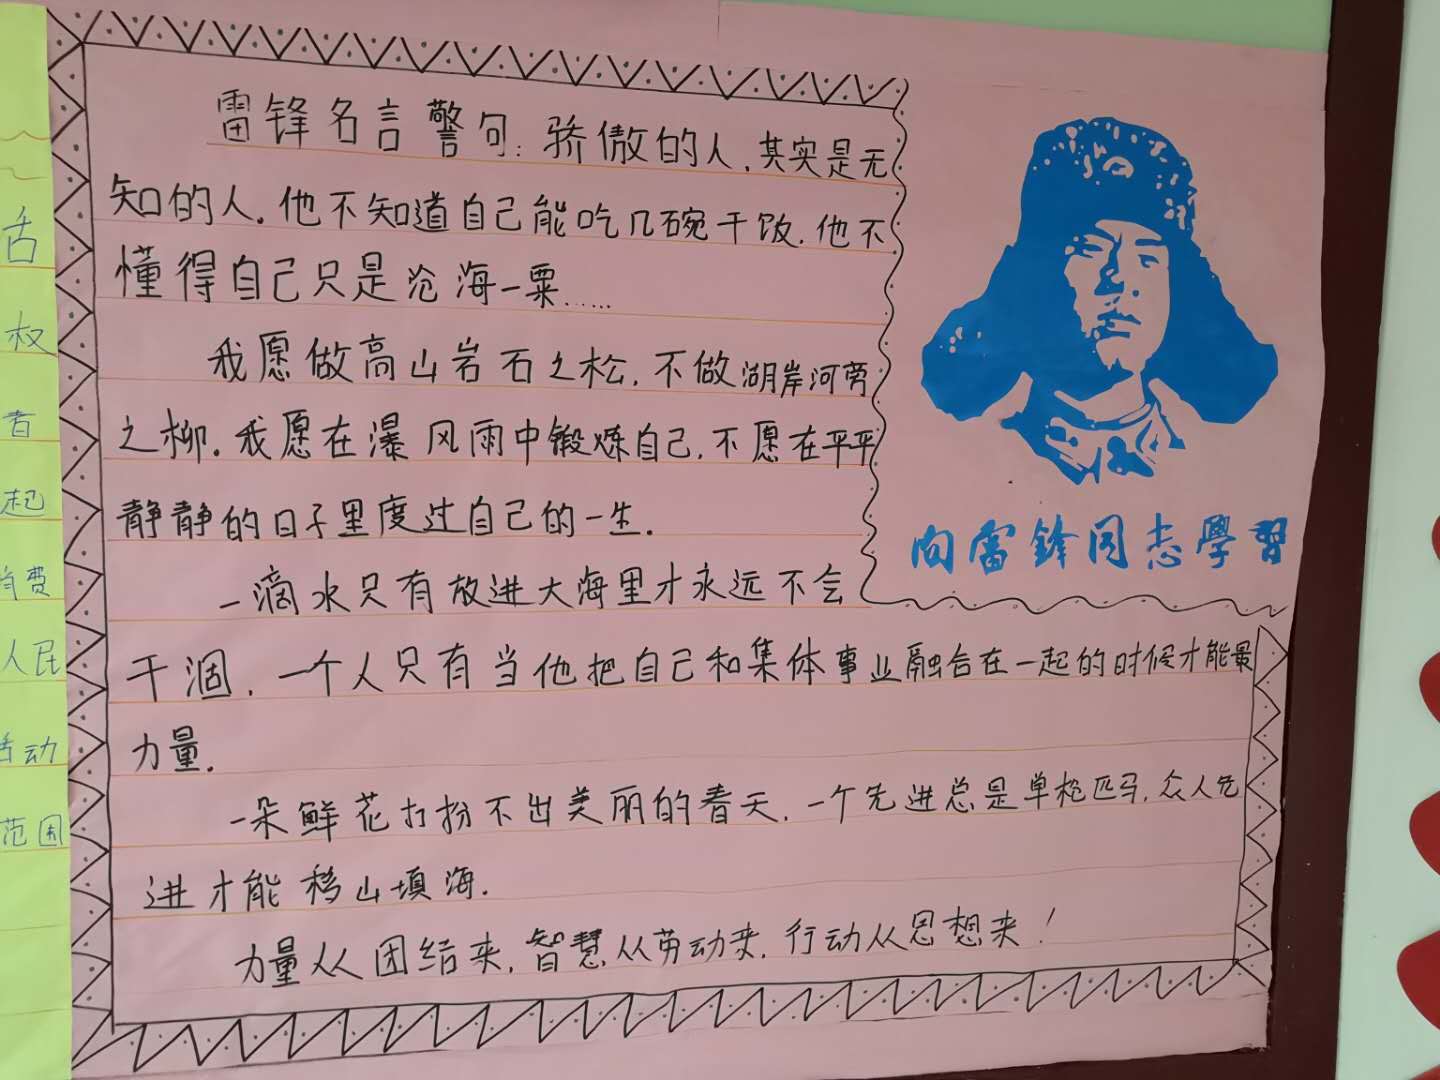 雷锋名言警句:骄傲的人,其实是无
知的人.他不知道自己能吃几碗干饭.他不
懂得自己只是沧海一粟……
我愿做高山岩石之松,不做湖岸河旁
之柳.我愿在瀑风雨中锻炼自己,不愿在平平
静静的日子里度过自己的一生.
一滴水只有放进大海里才永远不会
干涸,一个人只有当他把自己和集体事业融合在一起的时候才能最
力量.
一朵鲜花打扮不出美丽的春天,一个先进总是单枪匹马,众人先
进才能移山填海.
力量从团结来,智慧从劳动来,行动从思想来!
向雷鋒同志學習
舌
权
者
起
消费
人民
活动
范围